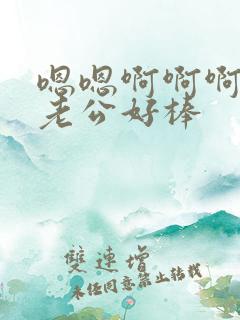 嗯嗯啊啊啊
老公好棒
雙連增
未经同意禁止转载